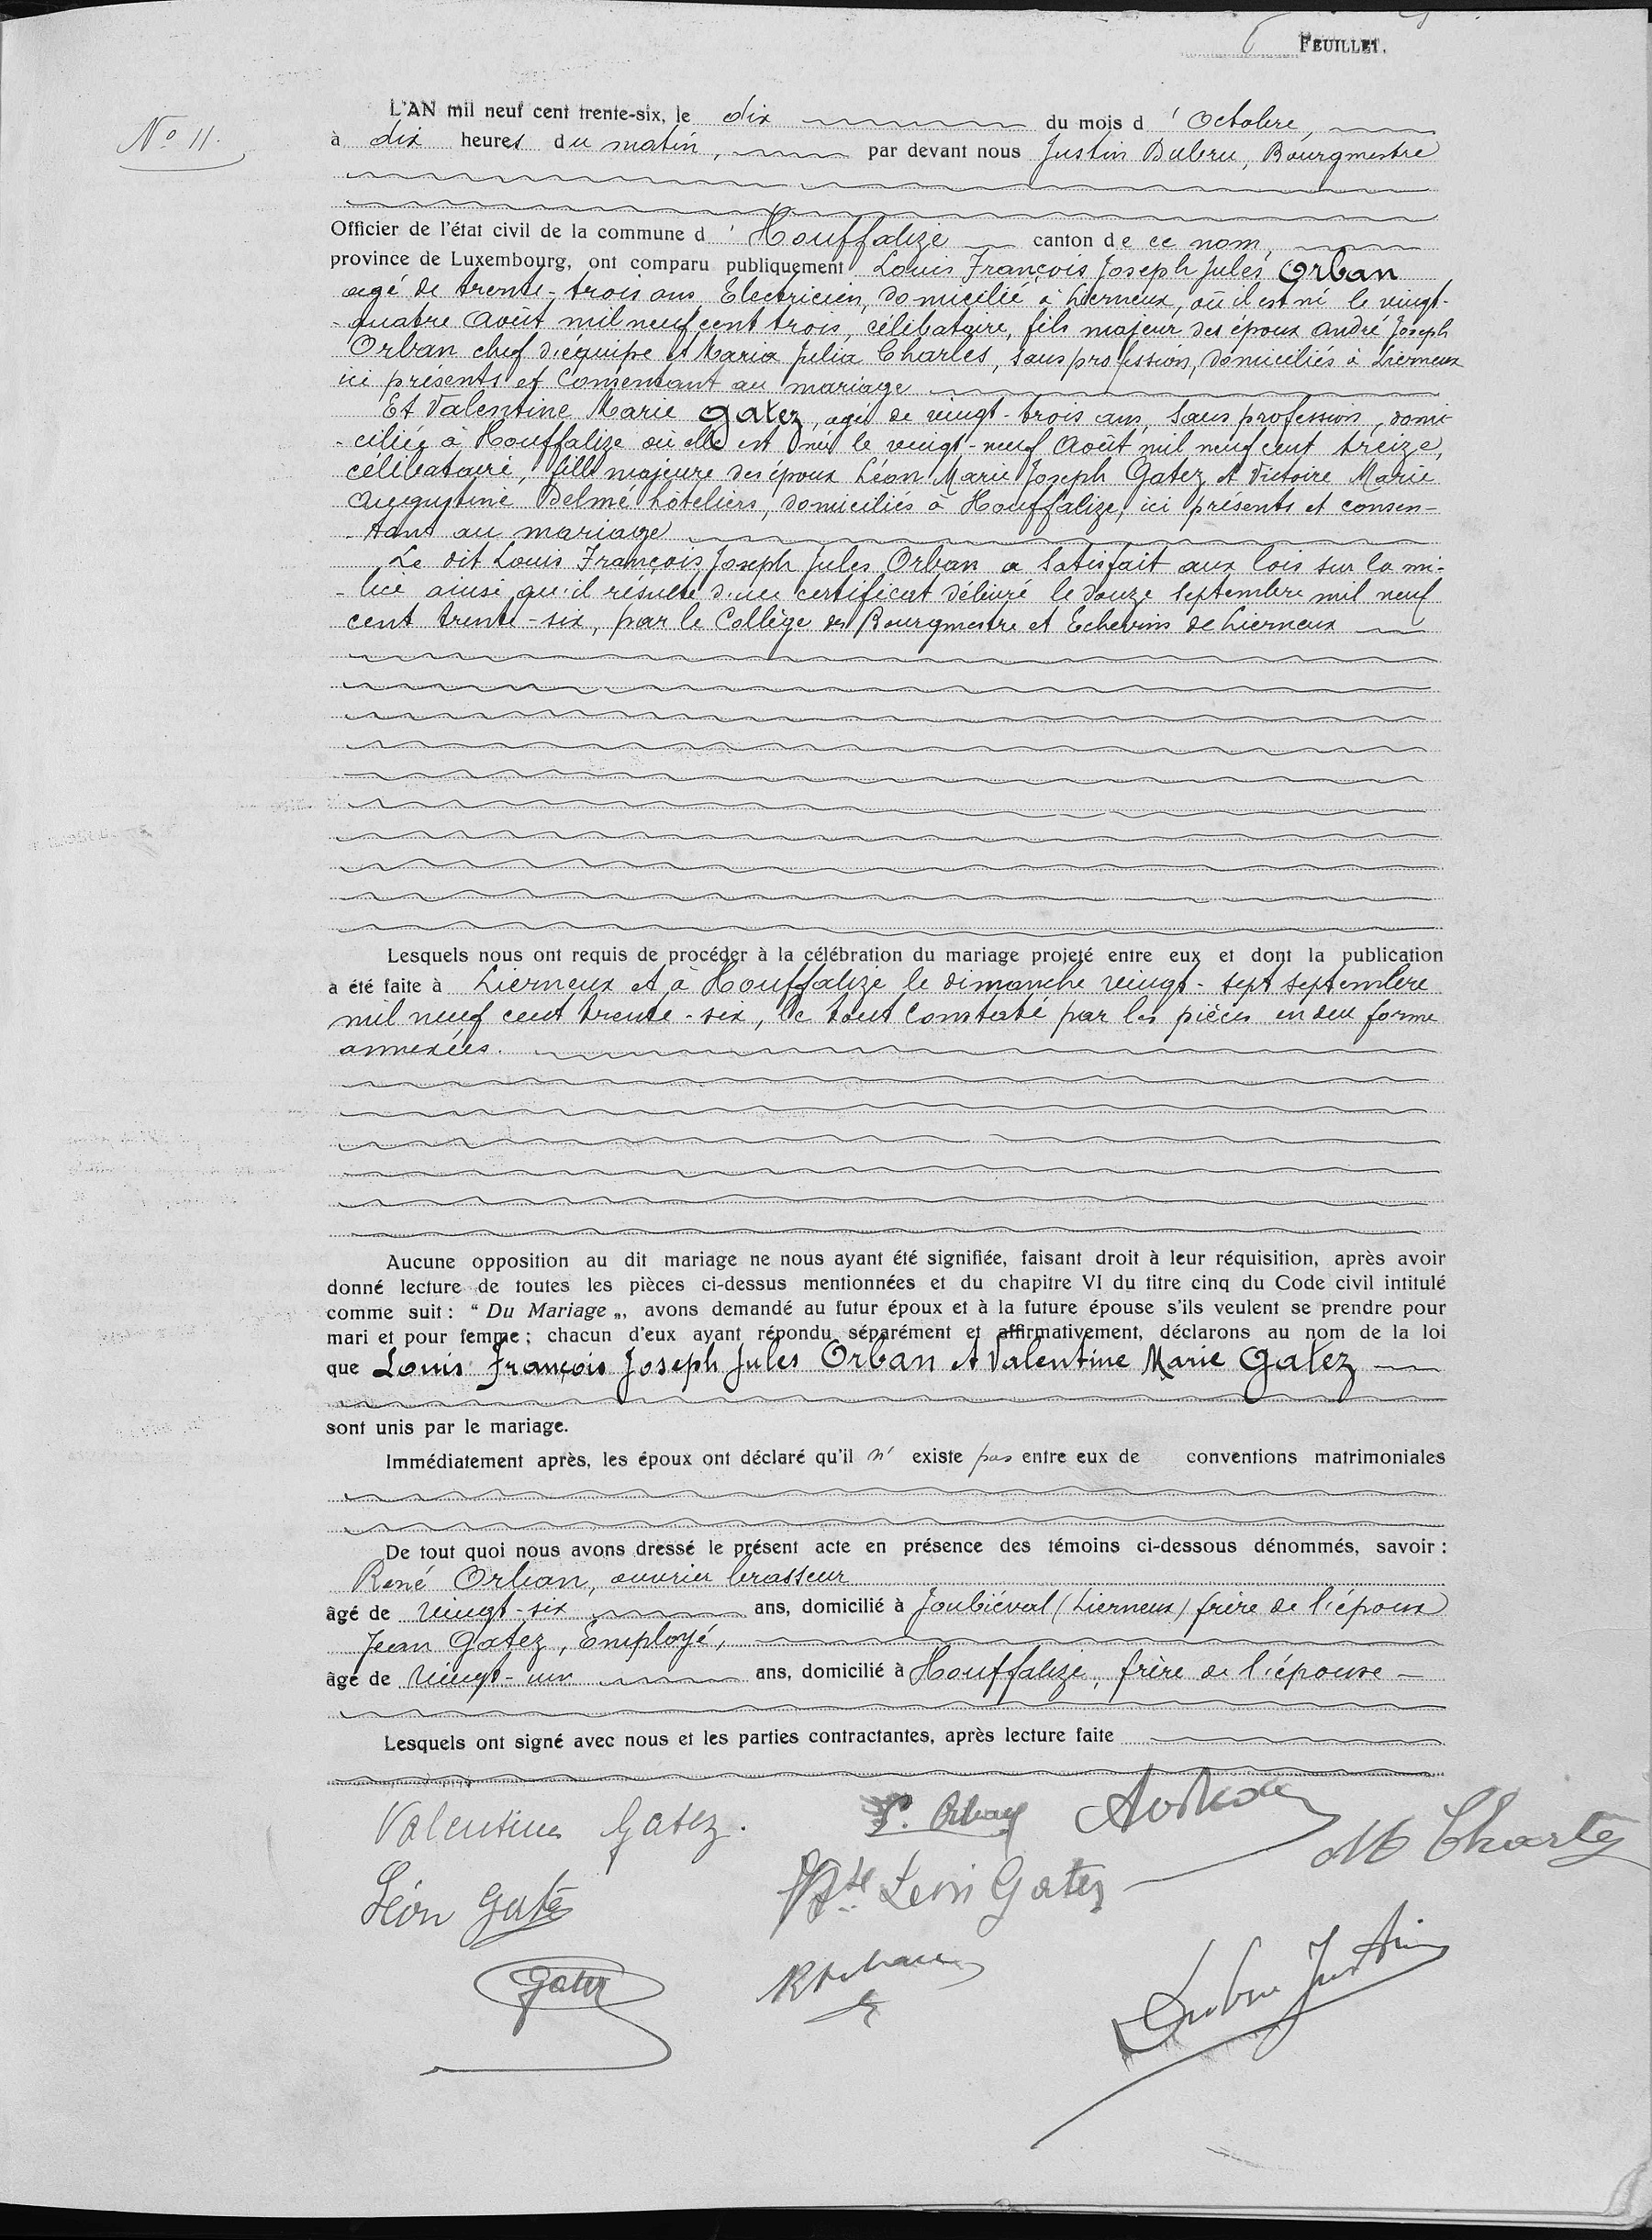 6 FEUILLET.
No 11.
L'AN mil neuf cent trente-six, le dix du mois d'Octobre,
à dix heures du matin, par devant nous Justin Dubru, Bourgmestre
Officier de l'état civil de la commune d'Houffalize canton de ce nom,
province de Luxembourg, ont comparu publiquement Louis François Joseph Jules Orban
agé de trente-trois ans Electricien, domicilié à Lierneux, où il est né le vingt-
-quatre Août mil neuf cent trois, célibataire, fils majeur des époux André Joseph
Orban chef d'équipe et Maria Julia Charles, sans profession, domiciliés à Lierneux
ici présents et Consentant au mariage
Et Valentine Marie Gatez, agée de vingt-trois ans, Sans profession, domi-
-ciliée à Houffalize où elle est née le vingt-neuf Août mil neuf cent treize,
célibataire, fille majeure des époux Léon Marie Joseph Gatez et Victoire Marie
Augustine Delmé hôteliers, domiciliés à Houffalize, ici présents et consen-
-tant au mariage
Le dit Louis François Joseph Jules Orban a Satisfait aux lois sur la mi-
-lice ainsi qu'il résulte d'un certificat délivré le douze septembre mil neuf
cent trente-six, par le Collège des Bourgmestre et Echevins de Lierneux
Lesquels nous ont requis de procéder à la célébration du mariage projeté entre eux et dont la publication
a été faite à Lierneux et à Houffalize le dimanche vingt-sept septembre
mil neuf cent trente-six, le tout Constaté par les pièces en due forme
annexées.
Aucune opposition au dit mariage ne nous ayant été signifiée, faisant droit à leur réquisition, après avoir
donné lecture de toutes les pièces ci-dessus mentionnées et du chapitre VI du titre cinq du Code civil intitulé
comme suit : “ Du Mariage „, avons demandé au futur époux et à la future épouse s'ils veulent se prendre pour
mari et pour femme ; chacun d'eux ayant répondu séparément et affirmativement, déclarons au nom de la loi
que Louis François Joseph Jules Orban et Valentine Marie Gatez
sont unis par le mariage.
Immédiatement après, les époux ont déclaré qu'il n' existe pas entre eux de conventions matrimoniales
De tout quoi nous avons dressé le présent acte en présence des témoins ci-dessous dénommés, savoir :
René Orban, ouvrier brasseur
âgé de vingt-six ans, domicilié à Joubiéval (Lierneux) frère de l'époux
Jean Gatez, Employé,
âgé de vingt-un ans, domicilié à Houffalize, frère de l'épouse
Lesquels ont signé avec nous et les parties contractantes, après lecture faite
Valentine Gatez. Orban M Charles
Léon Gatez Léon Gatez
Gatez Dubru Justin